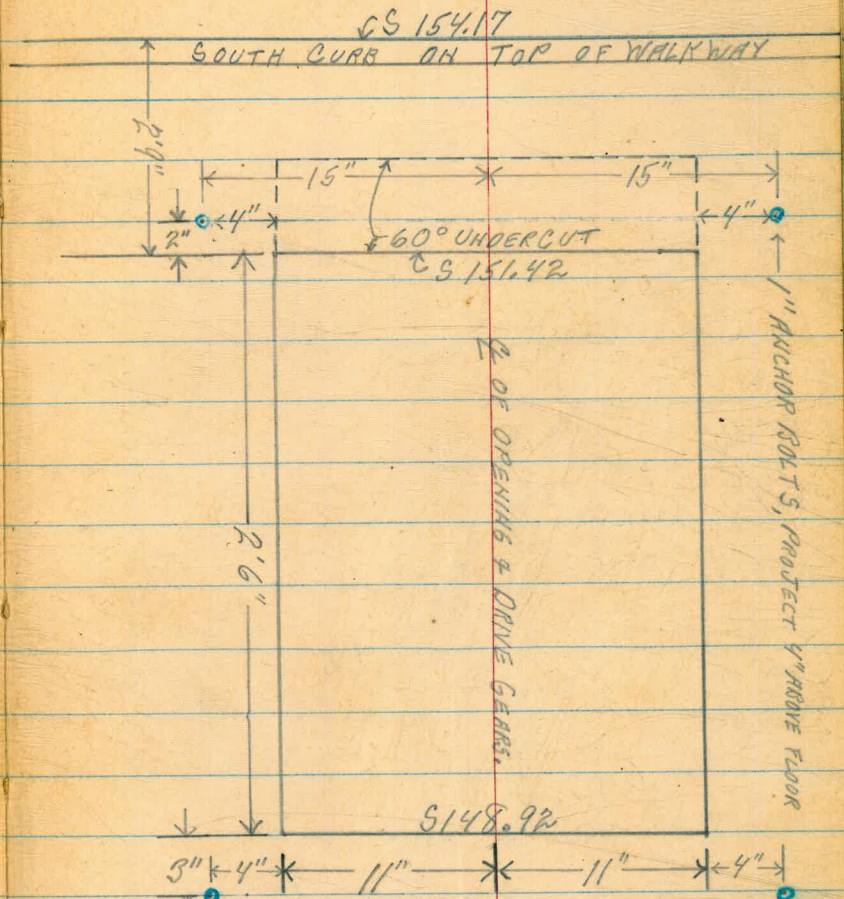 S 154.17
SOUTH CURB ON TOP OF WALKWAY
2'9"
15" 15"
4" 4"
2"
60° UNDERCUT
S 151.42
℄ OF OPENING & DRIVE GEARS.
1" ANCHOR BOLTS, PROJECT 4" ABOVE FLOOR
2'6"
S 148.92
3" 4" 11" 11" 4"